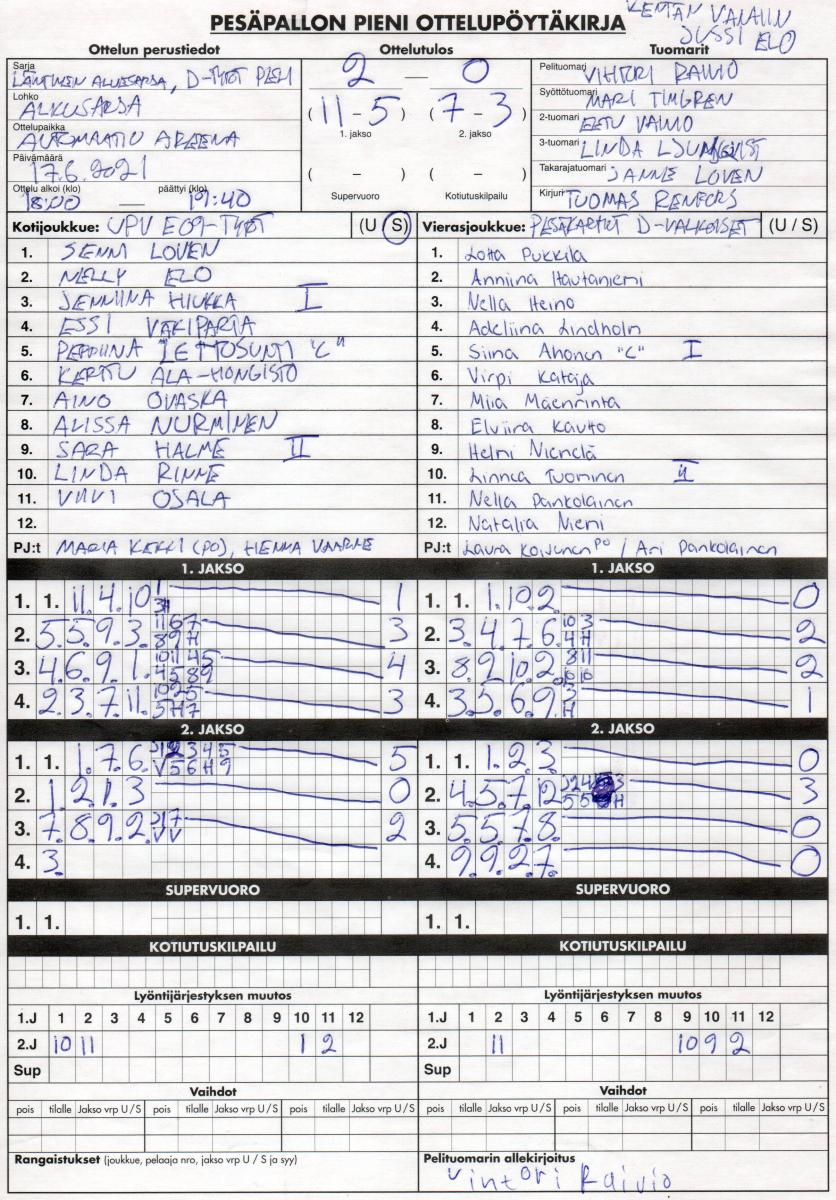 PESÄPALLON PIENI OTTELUPÖYTÄKIRJA
KENTÄN
JUSSI ELO
Ottelun perustiedot Ottelutulos Tuomarit
Sarja LÄNTINEN ALUESARJA, D-TYTÖT
Lohko ALKUSARJA
Ottelupaikka AUTOMAATIO AREENA
Päivämäärä 17.6.2021
Ottelu alkoi (klo) 18:00 — päättyi (klo) 19:40
2 — 0
(11 – 5) (7 – 3)
1. jakso 2. jakso
( – ) ( – )
Supervuoro Kotiutuskilpailu
Pelituomari VIHTORI RAIVIO
Syöttötuomari MARI TIMGREN
2-tuomari EETU VAINIO
3-tuomari LINDA LJUNGQVIST
Takarajatuomari JANNE LOVEN
Kirjuri TUOMAS RENFORS
Kotijoukkue: UPV E09-TYTÖT (U / S)
1. SENNI LOVEN
2. NELLY ELO
3. JENNIINA HIUKKA I
4. ESSI VÄKIPARTA
5. PEPPIINA "C"
6. KERTTU ALA-HONGISTO
7. AINO OVASKA
8. ALISSA NURMINEN
9. SARA HALME II
10. LINDA RINNE
11. VIIVI OSALA
12.
PJ:t MARIA KEKKI (PO), HENNA
Vierasjoukkue: PESÄKARHUT D-VALKOISET (U / S)
1. Lotta Pukkila
2. Anniina Hautaniemi
3. Nella Heino
4. Adeliina Lindholm
5. Siina Ahonen "C" I
6. Virpi Kataja
7. Miia Mäenrinta
8. Elviira Kautto
9. Helmi Niemelä
10. Linnea Tuominen II
11. Nella Pankolainen
12. Natalia Niemi
PJ:t Laura Koivunen PO / Ari Pankolainen
1. JAKSO 1. JAKSO
1. 1. 11. 4. 10. 1
2. 5. 5. 9. 3. 11 6 7 8 9 H 3
3. 4. 6. 9. 1. 10 11 4 5 4 5 8 9 4
4. 2. 3. 7. 11. 10 2 5 5 H 7 3
1. 1. 1. 10. 2. 0
2. 3. 4. 7. 6. 10 3 4 H 2
3. 8. 9. 10. 2. 8 11 10 10 2
4. 3. 5. 6. 9. 3 H 1
2. JAKSO 2. JAKSO
1. 1. 1. 7. 6. 5
2. 1. 2. 1. 3 0
3. 7. 8. 9. 2. 2
4. 3.
1. 1. 1. 2. 3. 0
2. 4. 5. 7. 12 3
3. 5. 5. 7. 8. 0
4. 9. 9. 2. 7. 0
SUPERVUORO SUPERVUORO
1. 1. 1. 1.
KOTIUTUSKILPAILU KOTIUTUSKILPAILU
Lyöntijärjestyksen muutos Lyöntijärjestyksen muutos
1.J 1 2 3 4 5 6 7 8 9 10 11 12
2.J 10 11 1 2
Sup
1.J 1 2 3 4 5 6 7 8 9 10 11 12
2.J 11 10 9 2
Sup
Vaihdot Vaihdot
pois tilalle Jakso vrp U/S pois tilalle Jakso vrp U/S pois tilalle Jakso vrp U/S
pois tilalle Jakso vrp U/S pois tilalle Jakso vrp U/S pois tilalle Jakso vrp U/S
Rangaistukset (joukkue, pelaaja nro, jakso vrp U / S ja syy)
Pelituomarin allekirjoitus
Vihtori Raivio